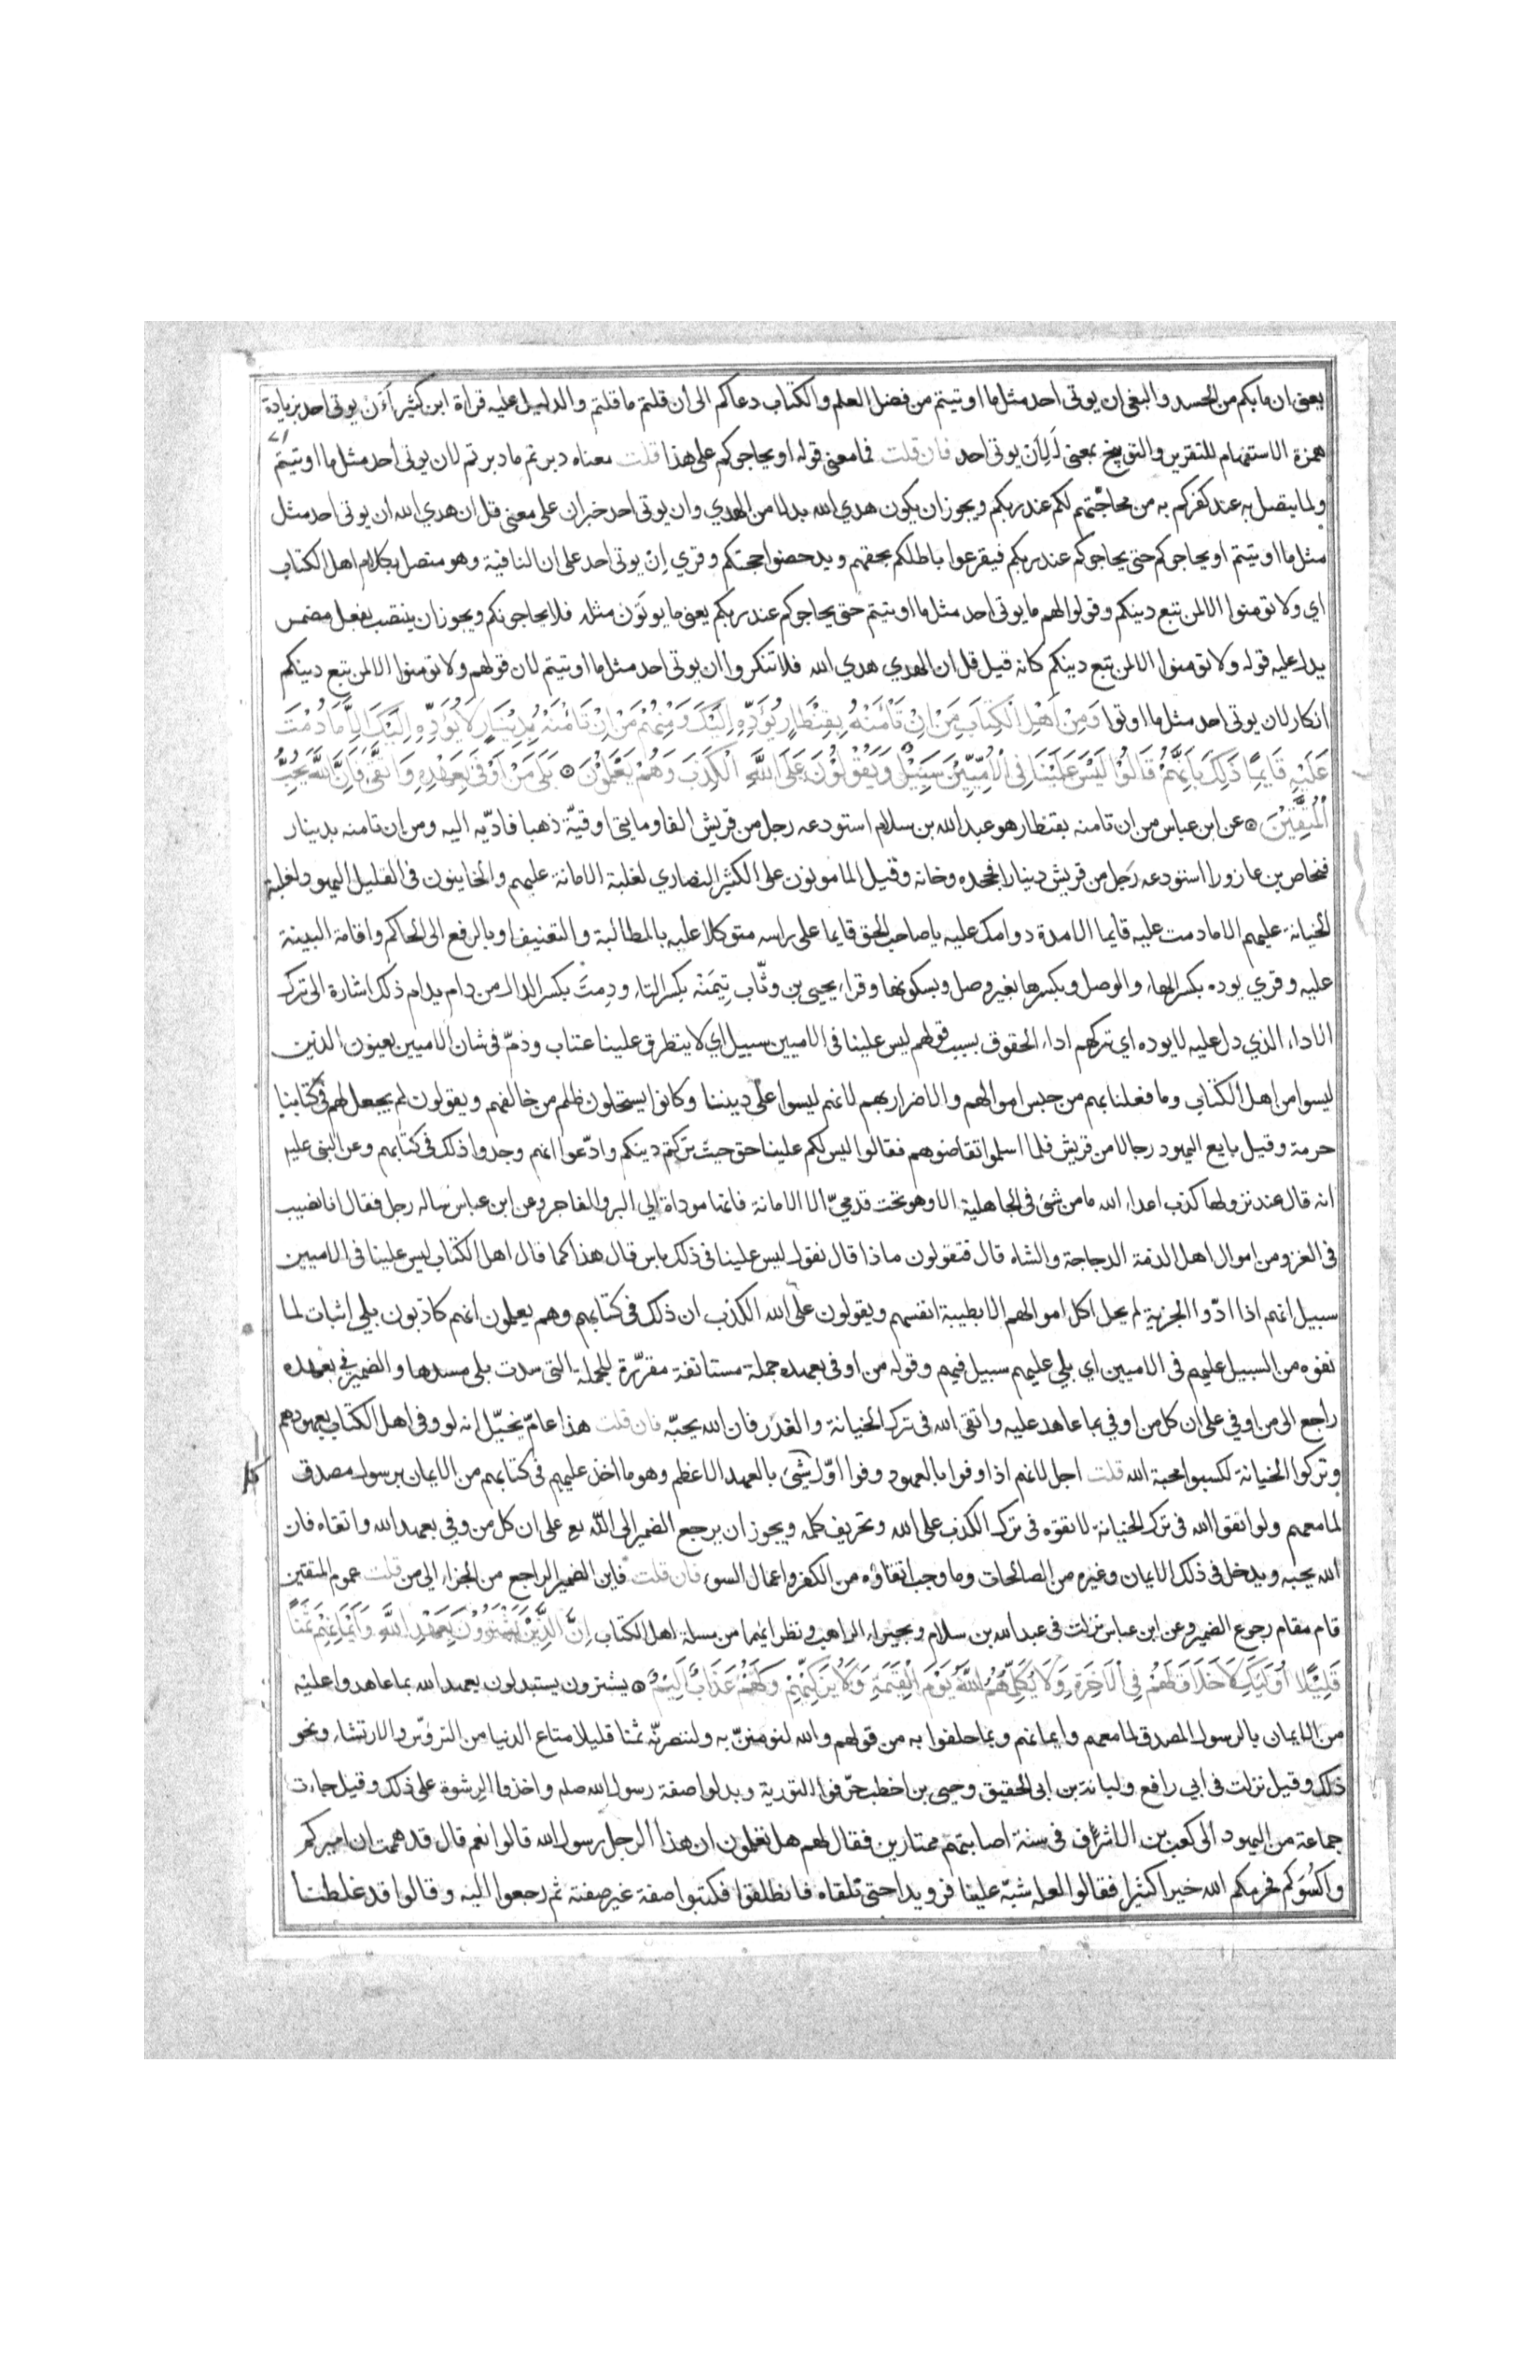 يعني ان ما بكم من الحسد والبغي ان يوتى احد مثل ما اوتيتم من فضل العلم والكتاب دعاكم الى ان قلتم ما قلتم والدليل عليه قراة ابن كثير أأن يوتى احد بزيادة
همزة الاستفهام للتقرير والتوبيخ بمعنى لَلِأن يوتى احد فان قلت فما معنى قوله او يحاجوكم على هذا قلت معناه دبرتم ما دبرتم لان يوتى احد مثل ما اوتيتم
ولما يتصل به عند كفركم به من محاجّتهم لكم عند ربكم ويجوز ان يكون هدي الله بدلا من الهدي وان يوتى احد خبر ان على معنى قل ان هدي الله ان يوتى احد مثل
مثل ما اوتيتم او يحاجوكم حتى يحاجوكم عند ربكم فيقرعوا باطلكم بحقهم ويدحضوا حجتكم وقري اِن يوتى احد على ان النافية وهو متصل بكلام اهل الكتاب
اي ولا تومنوا الا لمن تبع دينكم وقولوا لهم ما يوتى احد مثل ما اوتيتم حتى يحاجوكم عند ربكم يعني ما يوتَون مثله فلا يحاجونكم ويجوز ان ينتصب بفعل مضمر
يدل عليه قوله ولا تومنوا الا لمن تبع دينكم كانه قيل قل ان الهدي هدي الله فلا تنكروا ان يوتى احد مثل ما اوتيتم لان قولهم ولا تومنوا الا لمن تبع دينكم
انكار لان يوتى احد مثل ما اوتوا وَمِنْ اَهْلِ الْكِتَابِ مَنْ اِنْ تَأْمَنْهُ بِقِنْطَارٍ يُؤَدِّهِ اِلَيْكَ وَمِنْهُمْ مَنْ اِنْ تَأْمَنْهُ بِدِينَارٍ لَا يُؤَدِّهِ اِلَيْكَ اِلَّا مَا دُمْتَ
عَلَيْهِ قَايِمًا ذَلِكَ بِاَنَّهُمْ قَالُوا لَيْسَ عَلَيْنَا فِي الْاُمِّيِّينَ سَبِيلٌ وَيَقُولُونَ عَلَى اللَّهِ الْكَذِبَ وَهُمْ يَعْلَمُونَ ۞ بَلَى مَنْ اَوْفَى بِعَهْدِهِ وَاتَّقَى فَاِنَّ اللَّهَ يُحِبُّ
الْمُتَّقِينَ ۞ عن ابن عباس من ان تامنه بقنطار هو عبد الله بن سلام استودعه رجل من قريش الفا ومايتي اوقيّة ذهبا فادّيه اليه ومن ان تامنه بدينار
فنحاص بن عازورا استودعه رجل من قريش دينارا فجحده وخانه وقيل المامونون على الكثير النصاري لغلبة الامانة عليهم والخاينون في القليل اليهود لغلبة
الخيانة عليهم الا ما دمت عليه قايما الا مدة دوامك عليه يا صاحب الحق قايما على راسه متوكلا عليه بالمطالبة والتعنيف او بالرفع الى الحاكم واقامة البينة
عليه وقري يوده بكسر الهاء والوصل وبكسرها بغير وصل وبسكونها وقراء يحيى بن وثّاب تِيمَنْه بكسر التاء ودِمتَ بكسر الدال من دام يدام ذلك اشارة الى ترك
الاداء الذي دل عليه لا يوده اي تركهم اداء الحقوق بسبب قولهم ليس علينا في الاميين سبيل اي لا يتطرق علينا عتاب وذمّ في شان الاميين يعنون الذين
ليسوا من اهل الكتاب وما فعلنا بهم من حبس اموالهم والاضرار بهم لانهم ليسوا على ديننا وكانوا يستحلون ظلم من خالفهم ويقولون لم يجعل لهم في كتابنا
حرمة وقيل بايع اليهود رجالا من قريش فلما اسلموا تقاضوهم فقالوا ليس لكم علينا حق حيث تركتم دينكم وادّعوا انهم وجدوا ذلك في كتابهم وعن النبي عليه
انه قال عند نزولها كذب اعداء الله ما من شي في الجاهلية الا وهو تحت قدميّ الا الامانة فانها موداة الي البر والفاجر وعن ابن عباس ساله رجل فقال انا نصيب
في الغزو من اموال اهل الذمة الدجاجة والشاة قال فتقولون ماذا قال نقول ليس علينا في ذلك باس قال هذا كما قال اهل الكتاب ليس علينا في الاميين
سبيل انهم اذا ادّوا الجزية لم يحل اكل اموالهم الا بطيبة انفسهم ويقولون على الله الكذب ان ذلك في كتابهم وهم يعلمون انهم كاذبون بلي اثبات لما
نفوه من السبيل عليهم في الاميين اي بلي عليهم سبيل فيهم وقوله من اوفى بعهده جملة مستانفة مقرّرة للجملة التي سدت بلى مسدها والضمير في بعهده
راجع الى من اوفي على ان كل من اوفي بما عاهد عليه واتقى الله في ترك الخيانة والغدر فان الله يحبّه فان قلت هذا عامّ يخيّل انه لو وفى اهل الكتاب بعهودهم
وتركوا الخيانة لكسبوا محبة الله قلت اجل لانهم اذا وفوا بالعهود وفوا اوّل شيئ بالعهد الاعظم وهو ما اخذ عليهم في كتابهم من الايمان برسول مصدق
لما معهم ولو اتقوا الله في ترك الخيانة لاتقوه في ترك الكذب على الله وتحريف كلمه ويجوز ان يرجع الضمير الى اللّه تع على ان كل من وفي بعهد الله واتقاه فان
الله يحبه ويدخل في ذلك الايمان وغيره من الصالحات وما وجب اتقاؤه من الكفر واعمال السوء فان قلت فاين الضمير الراجع من الجزاء الي من قلت عموم المتقين
قام مقام رجوع الضمير وعن ابن عباس نزلت في عبد الله بن سلام وبحيراء الراهب ونظرايهما من مسلمة اهل الكتاب اِنَّ الَّذِينَ يَشْتَرُونَ بِعَهْدِ اللَّهِ وَاَيْمَانِهِمْ ثَمَنًا
قَلِيلًا اُولَيِكَ لَا خَلَاقَ لَهُمْ فِي الْاَخِرَةِ وَلَا يُكَلِّمُهُمُ اللَّهُ يَوْمَ الْقِيَمَةِ وَلَا يُزَكِّيهِمْ وَلَهُمْ عَذَابٌ اَلِيمٌ ۞ يشترون يستبدلون بعهد الله بما عاهدوا عليه
من الايمان بالرسول المصدق لما معهم وايمانهم وبما حلفوا به من قولهم والله لنومننّ به ولننصرنّه ثمنا قليلا متاع الدنيا من التروّس والارتشاء ونحو
ذلك وقيل نزلت في ابي رافع ولبانة بن ابي الحقيق وحيي بن اخطب حرّفوا التورية وبدلوا صفة رسول الله صلعم واخذوا الرشوة على ذلك وقيل جاءت
جماعة من اليهود الى كعب بن الاشرف في سنة اصابتهم ممتارين فقال لهم هل تعلمون ان هذا الرجل رسول الله قالوا نعم قال قد هممت ان اميركم
واكسُوَكم فحرمكم الله خيرا كثيرا فقالوا لعله شبّه علينا فرويدا حتى نلقاه فانطلقوا فكتبوا صفة غير صفته ثم رجعوا اليه وقالوا قد غلطنا